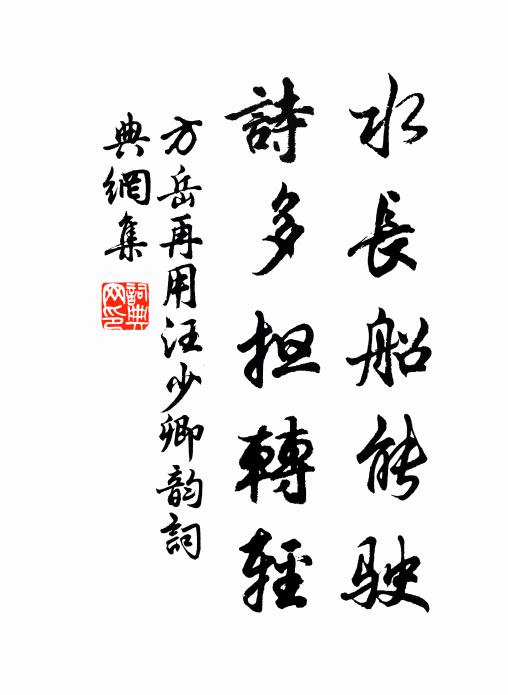 水長船能駛
詩多担轉輕
方岳再用汪少卿韵詞
典網集
詞典
网印